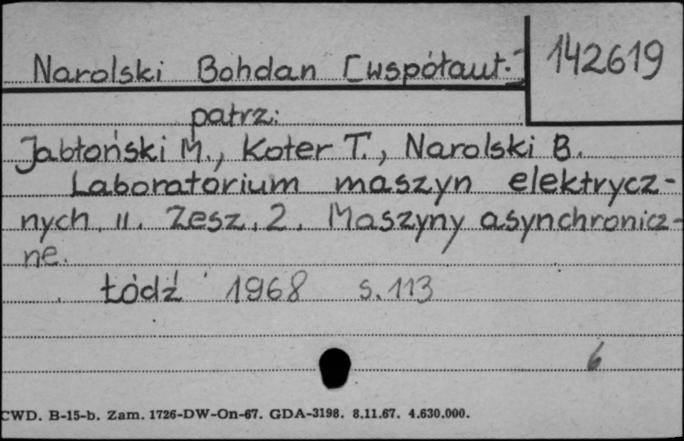 Narolski Bohdan [współaut.]
142619
patrz:
Jabłoński M., Koter T., Narolski B.
Laboratorium maszyn elektrycz-
nych. II. Zesz. 2. Maszyny asynchronicz-
ne.
Łódź 1968 s. 113
6
CWD. B-15-b. Zam. 1726-DW-On-67. GDA-3198. 8.11.67. 4.630.000.